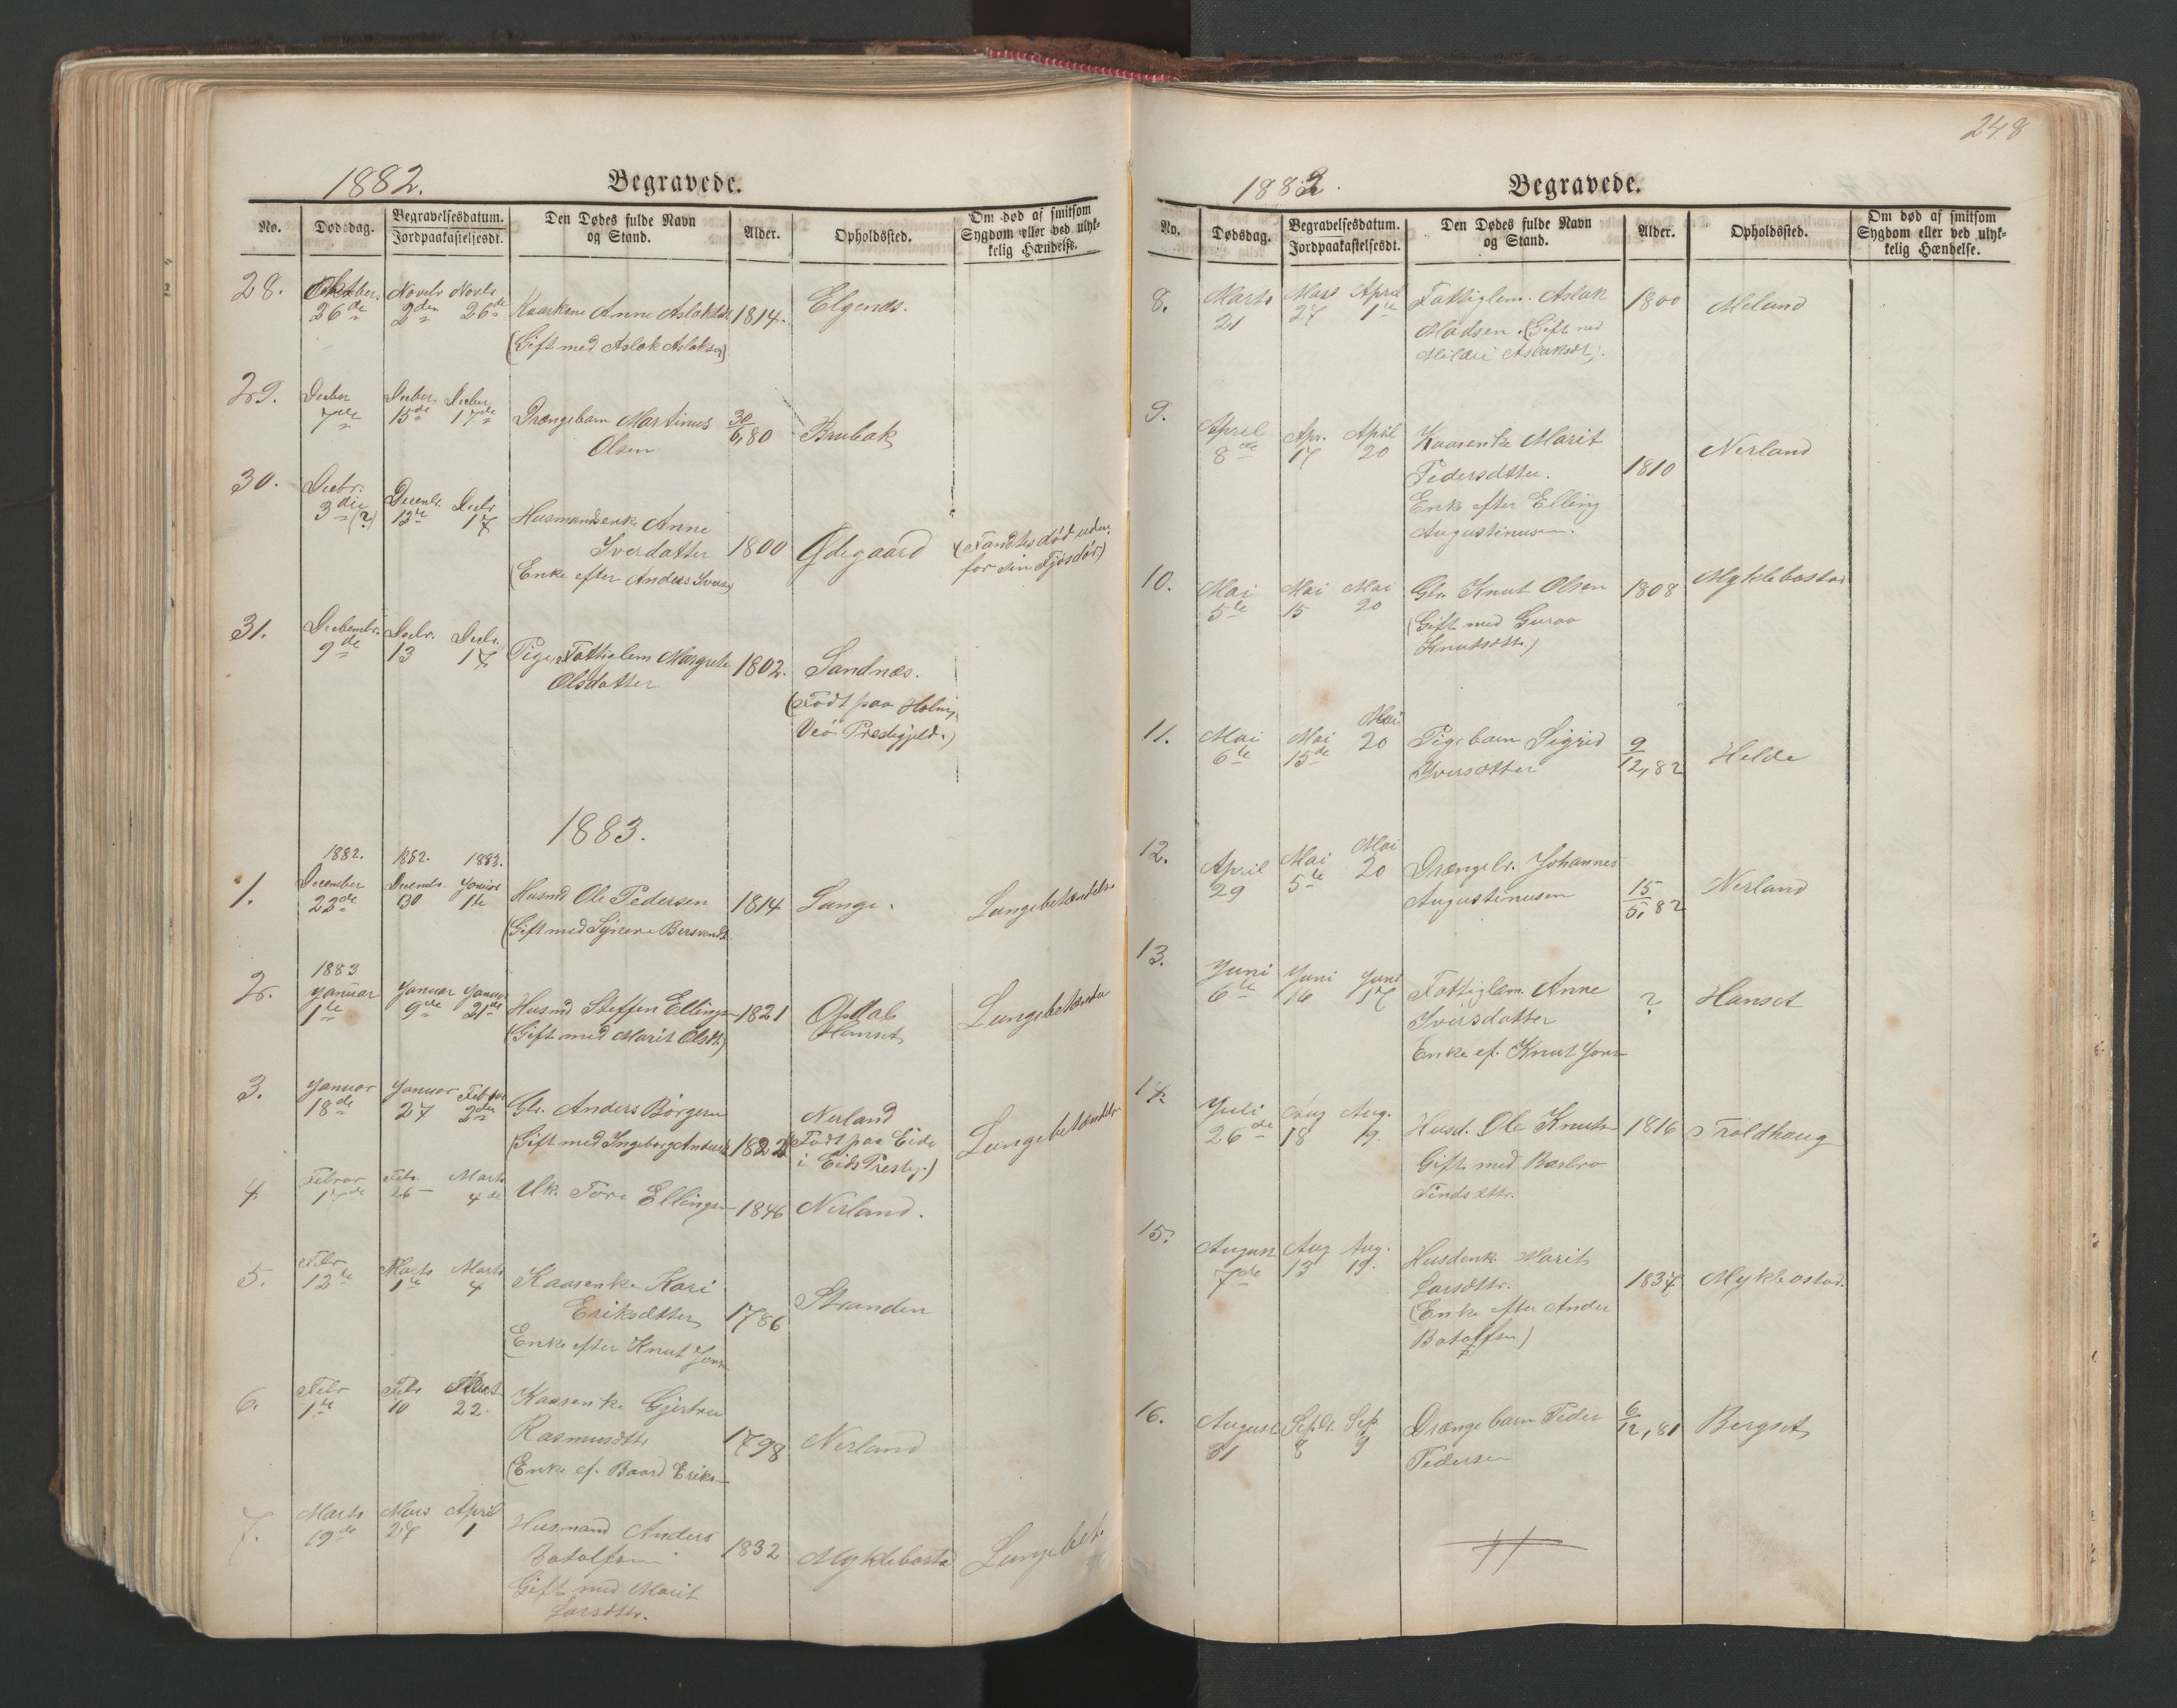 248
1882.
Begravede.
No. Dødsdag. Begravelsesdatum. Jordpaakastelsesdt. Den Dødes fulde Navn og Stand. Alder. Opholdssted. Om død af smitsom Sygdom eller ved ulykkelig Hændelse.
28. 26de Novbr 2den Novbr 26de Anne Aslaksd 1814.
(Gift med Aslak Aslaksen)
29. Decbr 7de Decbr. 15de Decbr 17de Drængebarn Martinus 30/6,80 Brubak
Olsen
30. Decbr. 3die (?) Decembr. 12te Decbr 17 Husmandsenke Anne
Iversdatter 1800 Ødegaard (Fandtes død uden-
(Enke efter Anders Iversen) for sin Fjøsdør)
31. Decembr. 9de Decbr. 13 Decbr. 17 Pige Fattiglem Margrete 1802. Sandnæs.
Olsdatter (Født paa Holm,
Veø Prestegjeld.)
1883.
1882. 1882. 1883.
1. December 23de Decembr. 30 Januar 1te Husmd Ole Pedersen 1814 Lange. Lungebetændelse
(Gift med Synnøve
1883
2. Januar 1te Januar 9de Januar 21de Husmd Steffen Ellingsen 1821 Opdal Lungebetændelse
(Gift med Marit Olsdt.) Hanset
3. Januar 18de Januar 27 Februar 2den Gbr. Anders Nerland Lungebetændelse
Gift med Ingeborg Andersd 1822 (Født paa Eide
i Eids Prestegj.)
4. Februar 17de Febr. 26 Marts 4de Uk. Tore Ellingsen 1846 Nerland.
5. Febr 12te Marts 1te Marts 4 Kaarenke Kari
Eriksdtter 1786 Stranden
(Enke efter Knut Jonsen
6. Febr 1te Febr 10 22. Kaarenke Gjertru
Rasmusdtr 1798 Nerland
(Enke ef. Baard Eriksen
7. Marts 19de Mars 27 April 1 Husmand Anders
Botolfsen 1832 Myklebostad Lungebet.
Gift med Marit
Larsdttr.
1883.
Begravede.
No. Dødsdag. Begravelsesdatum. Jordpaakastelsesdt. Den Dødes fulde Navn og Stand. Alder. Opholdssted. Om død af smitsom Sygdom eller ved ulykkelig Hændelse.
8. Marts 21 Mars 27 April 1te Fattiglem. Aslak 1800 Meland
Madsen. (Gift med
Aslaksdt).
9. April 8de Apr. 17 April 20 Kaarenke Marit Nerland
Pedersdtter. 1810
Enke efter Elling
Augustinusen.
10. Mai 5te Mai 15 Mai 20 Gbr. Knut Olsen 1808 Myklebostad
(Gift med Guroa
Knutsdttr)
11. Mai 6te Mai 15de Mai 20 Pigebarn Sigrid 9/12,82 Helde
Iversdtter
12. April 29 Mai 5te Mai 20 Drængeb. Johannes
Augustinusen 15/5,82 Nerland
13. Juni 6te Juni 16 Juni 17 Fattiglem. Anne ? Hanset
Iversdatter
Enke ef. Knut Jonsen
14. Juli 26de Aug 18 Aug. 19. Husd. Ole Knutsen 1816 Troldhaug
Gift med Barbro
Findsdttr.
15. August 7de Aug 13 Aug. 19. Husdenk. Marit
Larsdttr. 1834 Myklebostad.
(Enke efter Anders
Botolfsen)
16. August 31 Septbr. 8 Sep. 9 Drængebarn Peder 6/12,81 Bergset
Pedersen